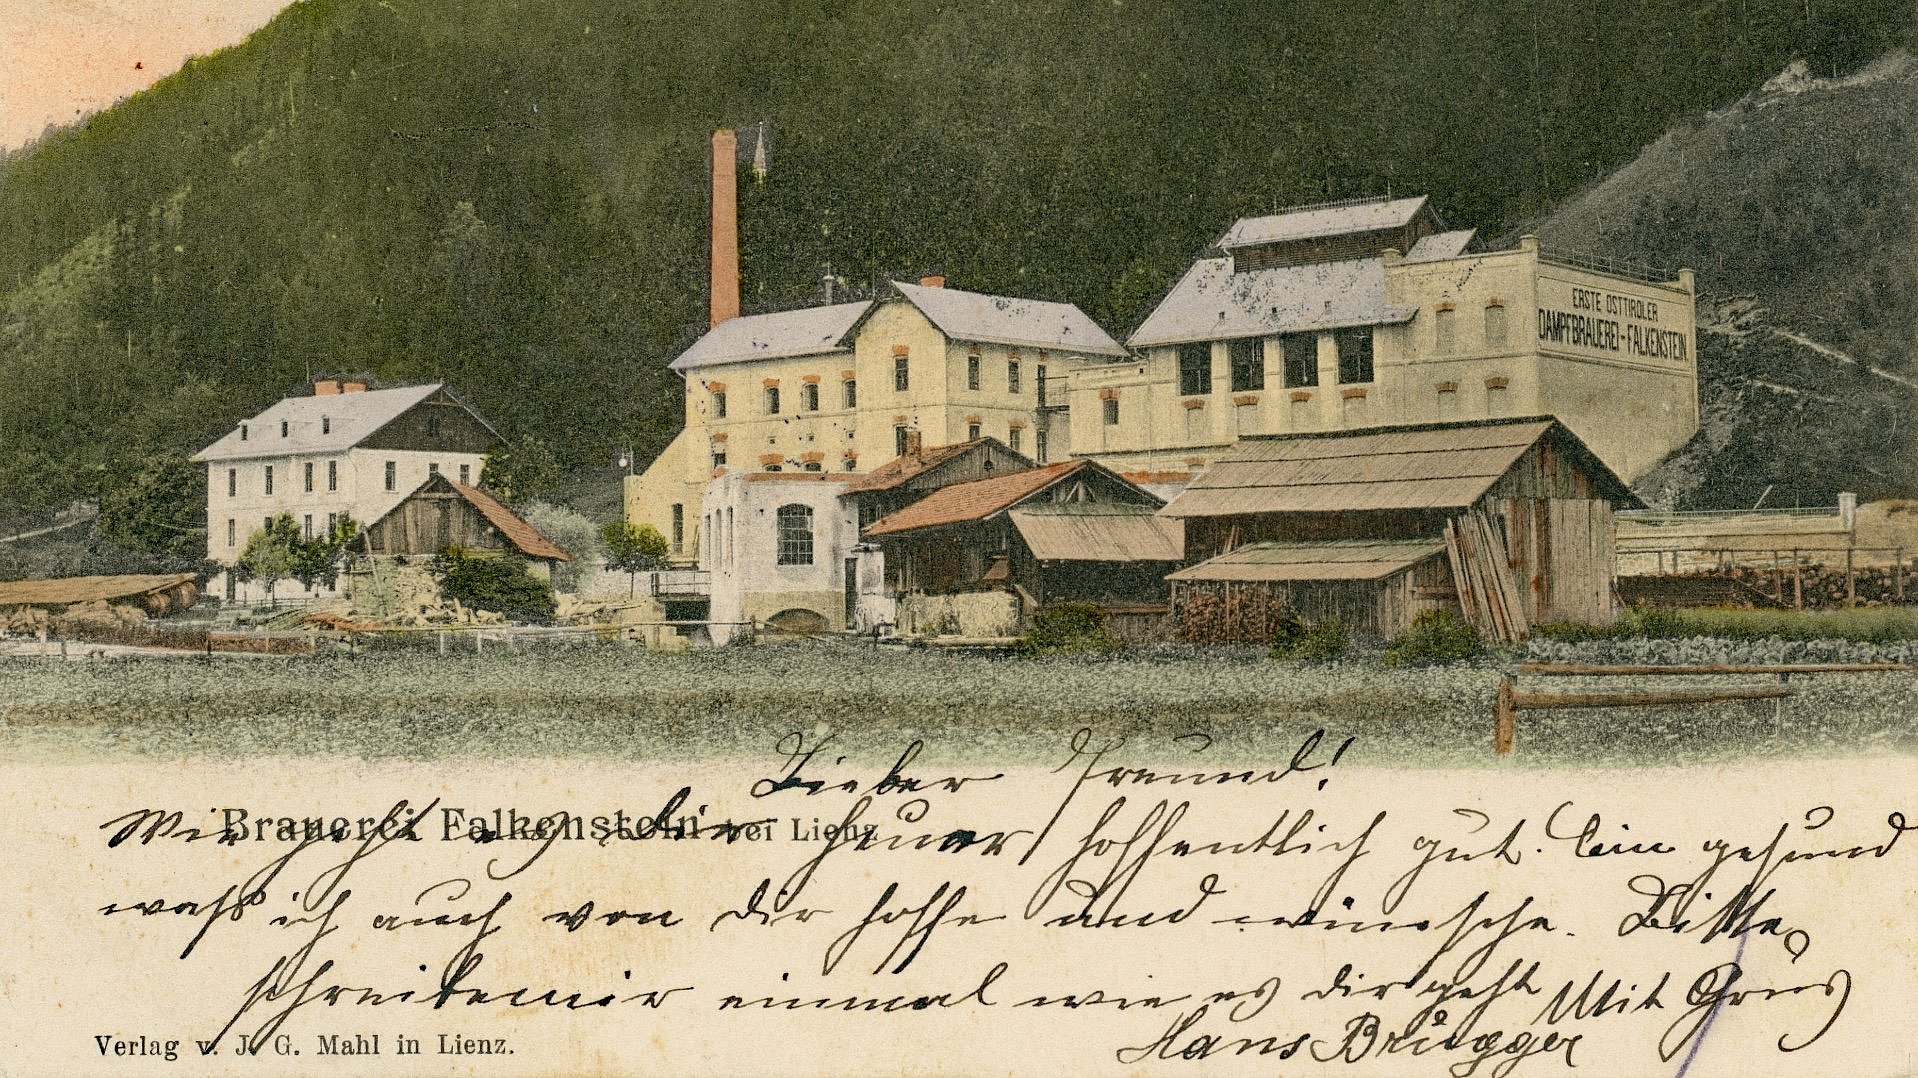 ERSTE OSTTIROLER
DAMPFBRAUEREI-FALKENSTEIN
Lieber Freund!
Brauerei Falkenstein bei Lienz
Wie geht es dir heuer hoffentlich gut. bin gesund
waß ich auch von dir hoffe und wünsche. Bitte
schreibe mir einmal wie es dir geht Mit Grus
Hans Brugger
Verlag v. J. G. Mahl in Lienz.